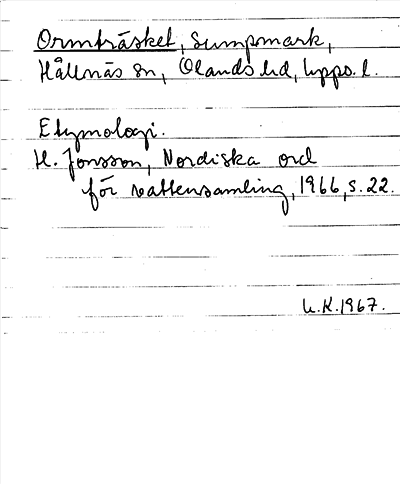 Ormträsket, Sumpmark,
Hållnäs sn, Olands hd, Upps. l.
Etymologi.
H. Jonsson, Nordiska ord
för vattensamling, 1966, s. 22.
U.K. 1967.